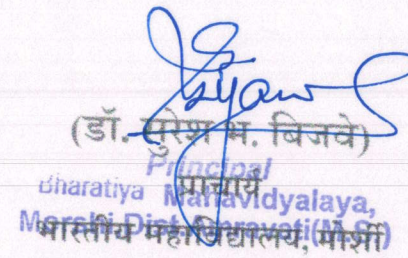 (डॉ. सुरेश भ. बिजवे)
Principal
प्राचार्य
Bharatiya Mahavidyalaya,
Morshi Dist. Amravati(M.S.)
भारतीय महाविद्यालय, मोर्शी